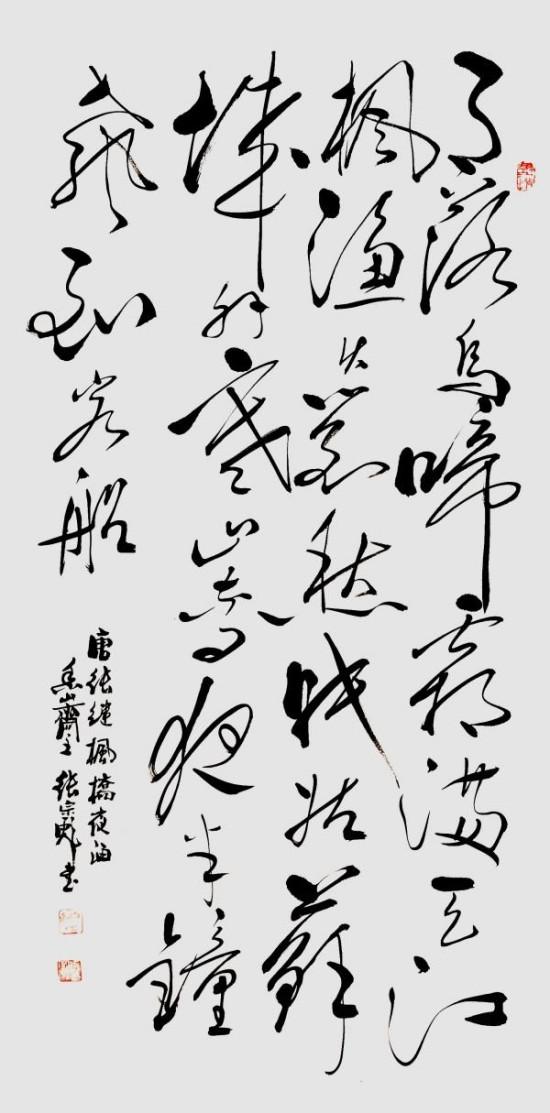 月落烏啼霜滿天江
楓漁火對愁眠姑蘇
城外寒山寺夜半鐘
聲到客船
唐張繼楓橋夜泊
山齋主張宗書